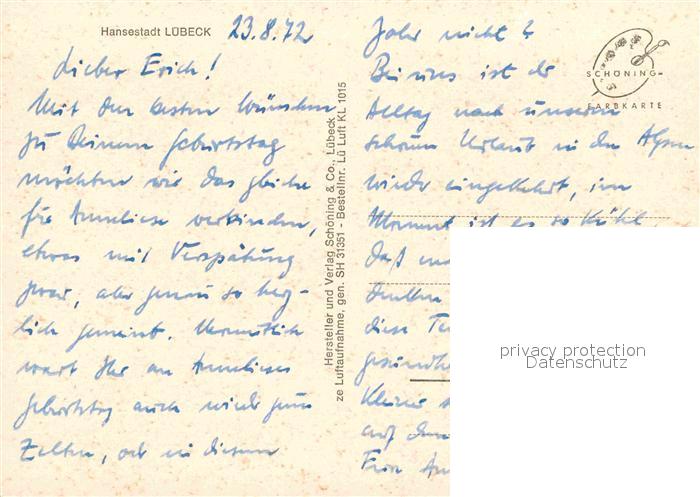 Hansestadt LÜBECK 23.8.72
Lieber Erich!
Mit den besten Wünschen
zu Deinem Geburtstag
möchten wir das gleiche
für Anneliese verbinden,
etwas mit Verspätung
zwar, aber genau so herz-
lich gemeint. Vermutlich
wart Ihr an Annelieses
Geburtstag auch wieder zum
Zelten, od. in diesem
Hersteller und Verlag Schöning & Co., Lübeck
ze Luftaufnahme, gen. SH 31351 - Bestellnr. Lü Luft KL 1015
Jahr nicht?
Bei uns ist der
Alltag nach unserem
schönen Urlaub in den Alpen
wieder eingekehrt, im
Moment ist es so kühl,
daß
denken
diese
gesundhe
Kleine
auf dem
Frau
SCHÖNING-
FARBKARTE
privacy protection
Datenschutz